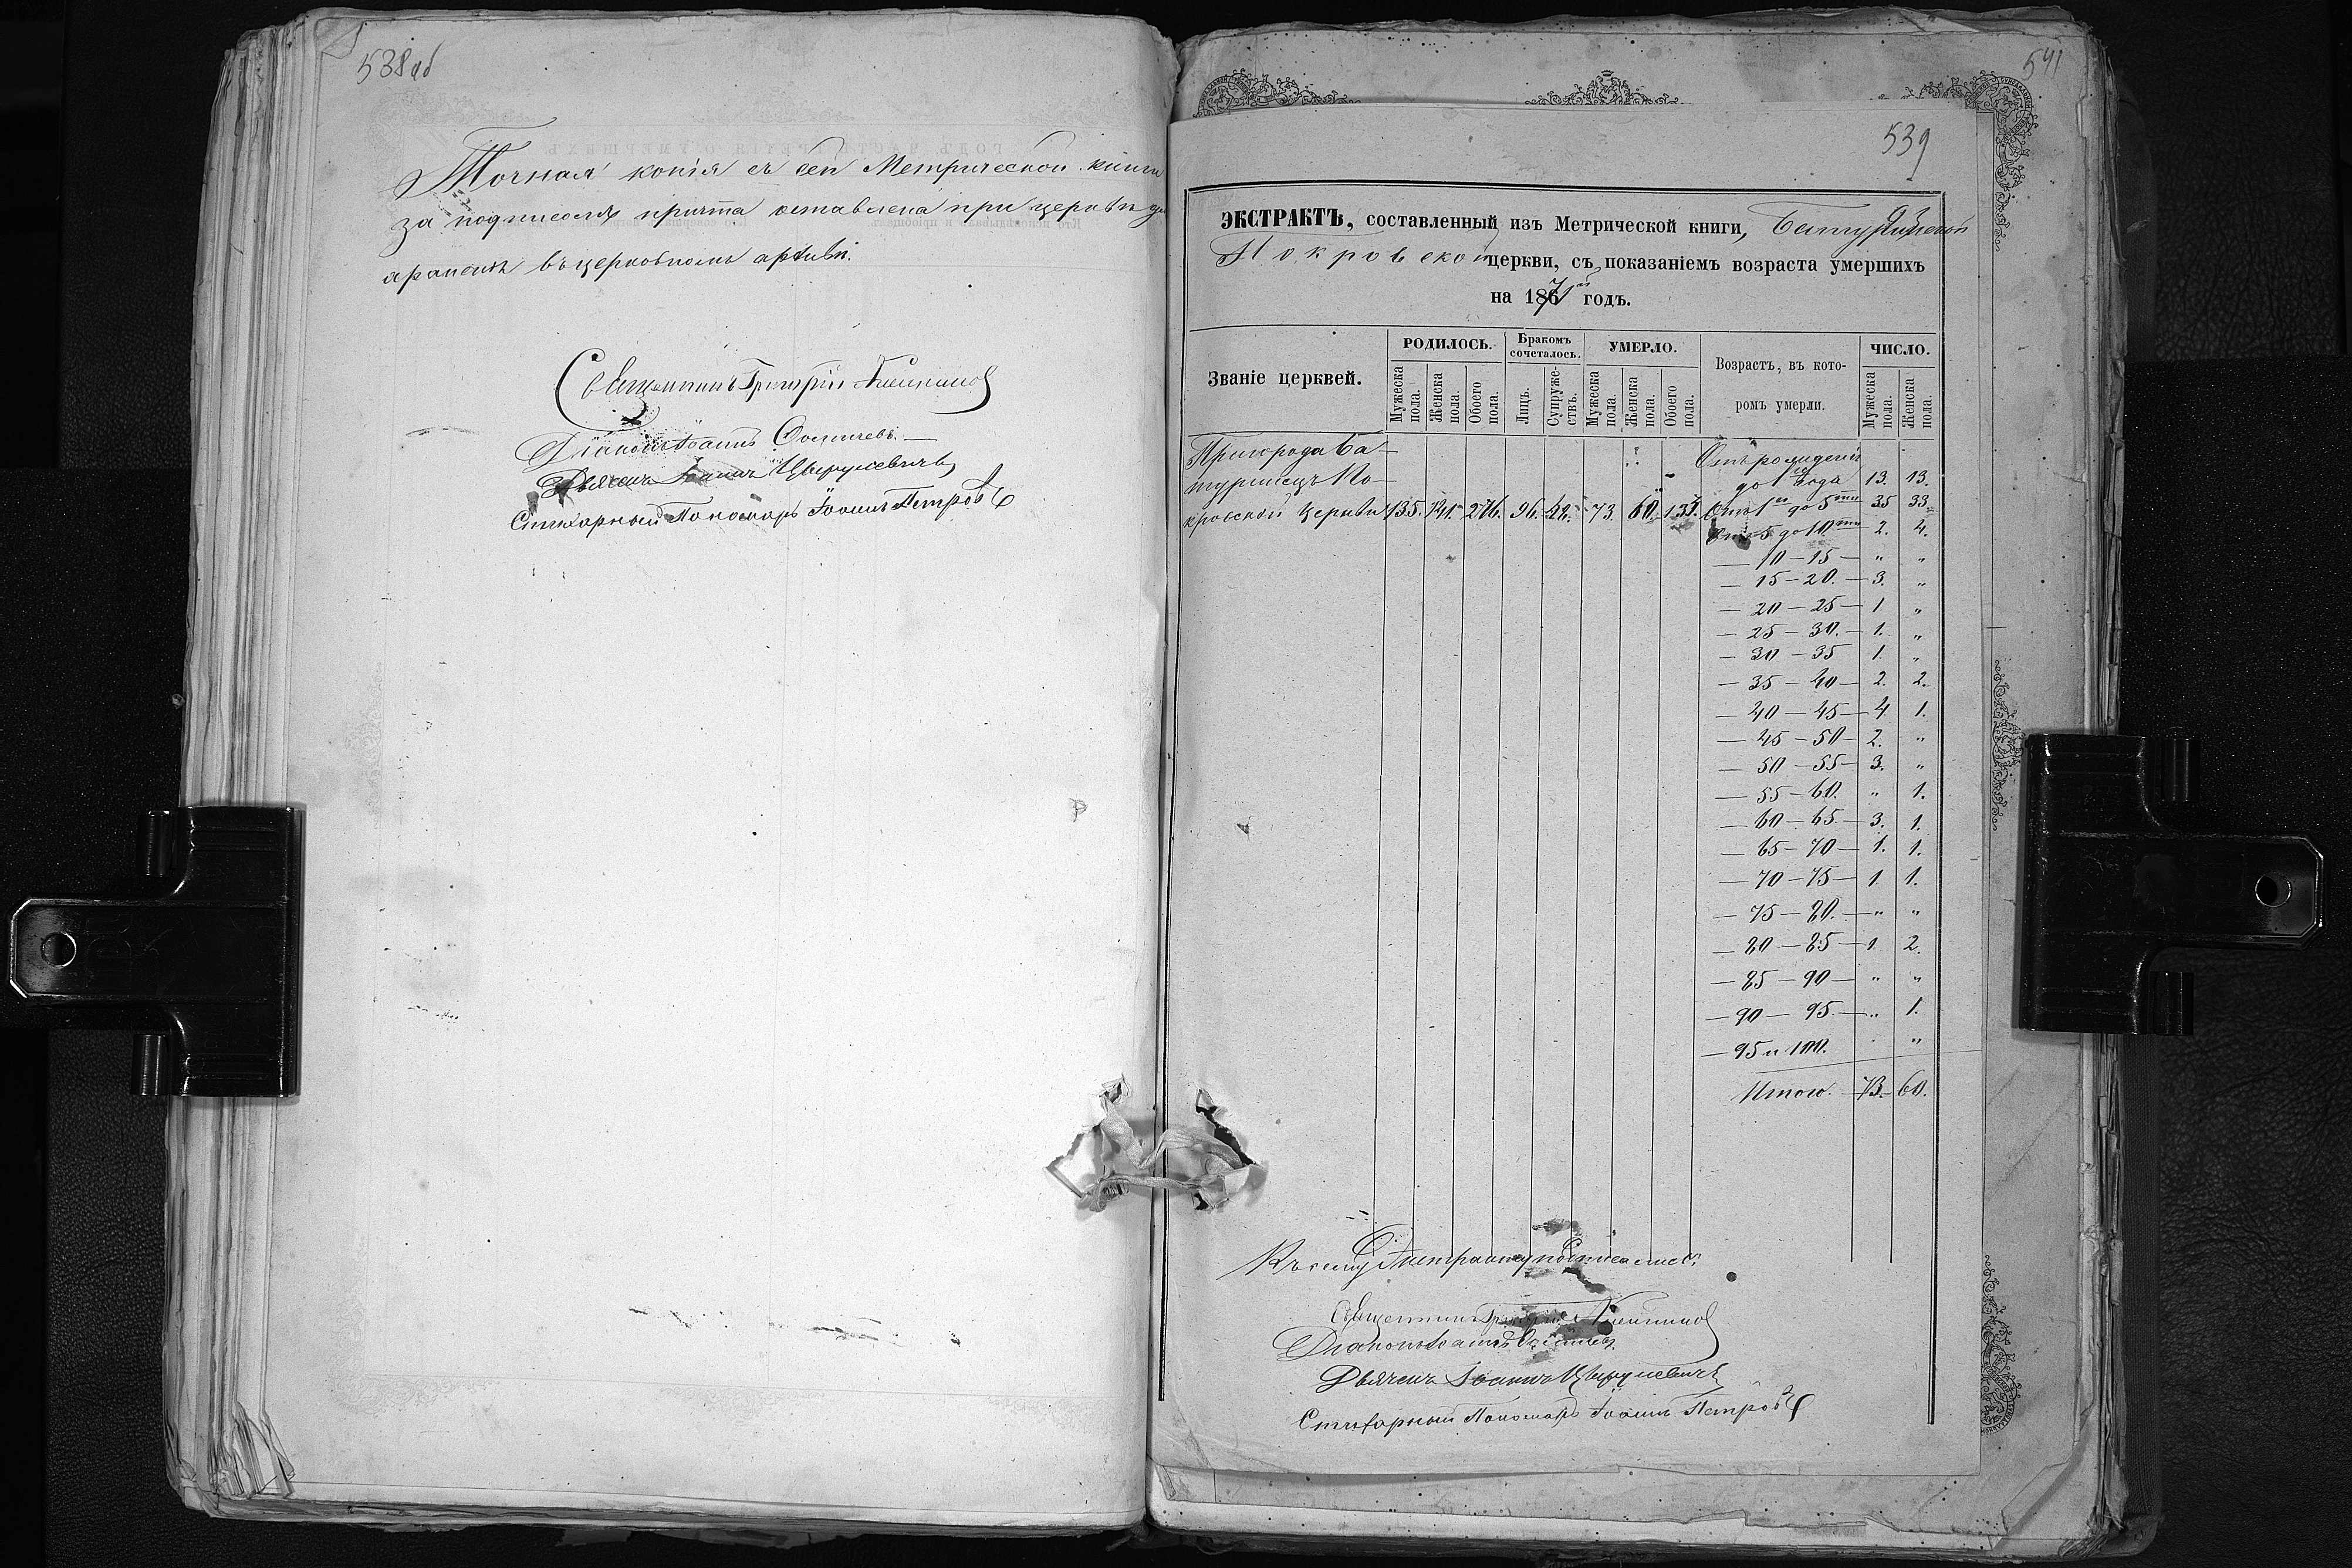 538 об
Точная копія съ сей Метрической книги
за подписомъ причта оставлена при церкви для
храненія въ церковномъ архивѣ.
Священникъ Григорій
Діаконъ Іоаннъ
Дьячекъ Іоаннъ
Стихарный Пономарь Іоаннъ Петровъ
541
539
ЭКСТРАКТЪ, составленный изъ Метрической книги, Батуринской
Покровской церкви, съ показаніемъ возраста умершихъ
на 1871 годъ.
Званіе церквей.
РОДИЛОСЬ.
Мужеска пола.
Женска пола.
Обоего пола.
Бракомъ сочеталось.
Лицъ.
Супруже-ствъ.
УМЕРЛО.
Мужеска пола.
Женска пола.
Обоего пола.
Возрастъ, въ кото-
ромъ умерли.
ЧИСЛО.
Мужеска пола.
Женска пола.
Пригорода Ба-
туринецъ По-
кровской Церкви 135. 141. 276. 96. 48. 73. 60. 133.
Отъ рожденія
до 1го года 13. 13.
Отъ 1 до 5ти 35 33.
Отъ 5 до 10ти 2. 4.
— 10 — 15 — " "
— 15 — 20. — 3. "
— 20 — 25 — 1. "
— 25 — 30. — 1. "
— 30 — 35 1. "
— 35 — 40 — 2. 2.
— 40 — 45 — 4. 1.
— 45 — 50 — 2. "
— 50 — 55 — 3. "
— 55 — 60. " 1.
— 60 — 65 — 3. 1.
— 65 — 70 — 1. 1.
— 70 — 75 — 1. 1.
— 75 — 80. — " "
— 80 — 85 — 1. 2.
— 85 — 90 — " "
— 90 — 95 — " 1.
— 95 и 100. "
Итого. 73. 60.
Къ сему Экстракту подписались:
Священникъ Григорій
Діаконъ Іоаннъ
Дьячекъ Іоаннъ
Стихарный Пономарь Іоаннъ Петровъ